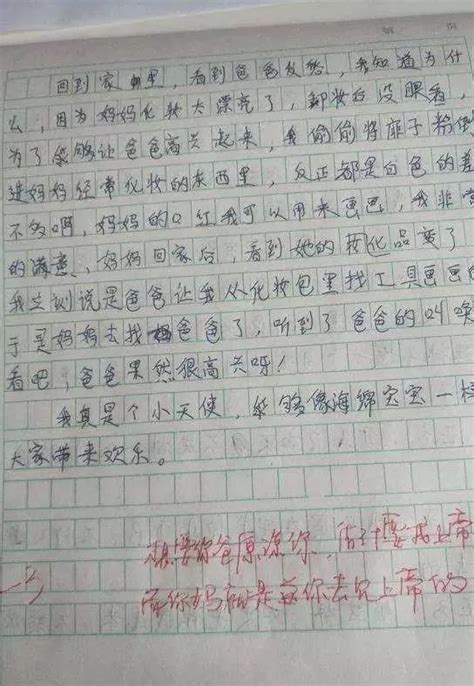 回到家里，看到爸爸发愁，我知道为什
么，因为妈妈化妆太漂亮了，卸妆后没眼看，
为了能够让爸爸高兴起来，我偷偷将痱子粉倒
进妈妈经常化妆的东西里，反正都是白色的差
不多啊，妈妈的口红我可以用来画巴，我非常
的满意、妈妈回家后，看到她的妆化品变了
我立刻说是爸爸让我从化妆包里找工具画画
于是妈妈去找爸爸了，听到了爸爸的叫唤
看吧，爸爸果然很高兴呀！
我真是个小天使，能够像海绵宝宝一样
大家带来欢乐。
想要你爸原谅你，估计要成上帝
而你妈就是送你去见上帝的